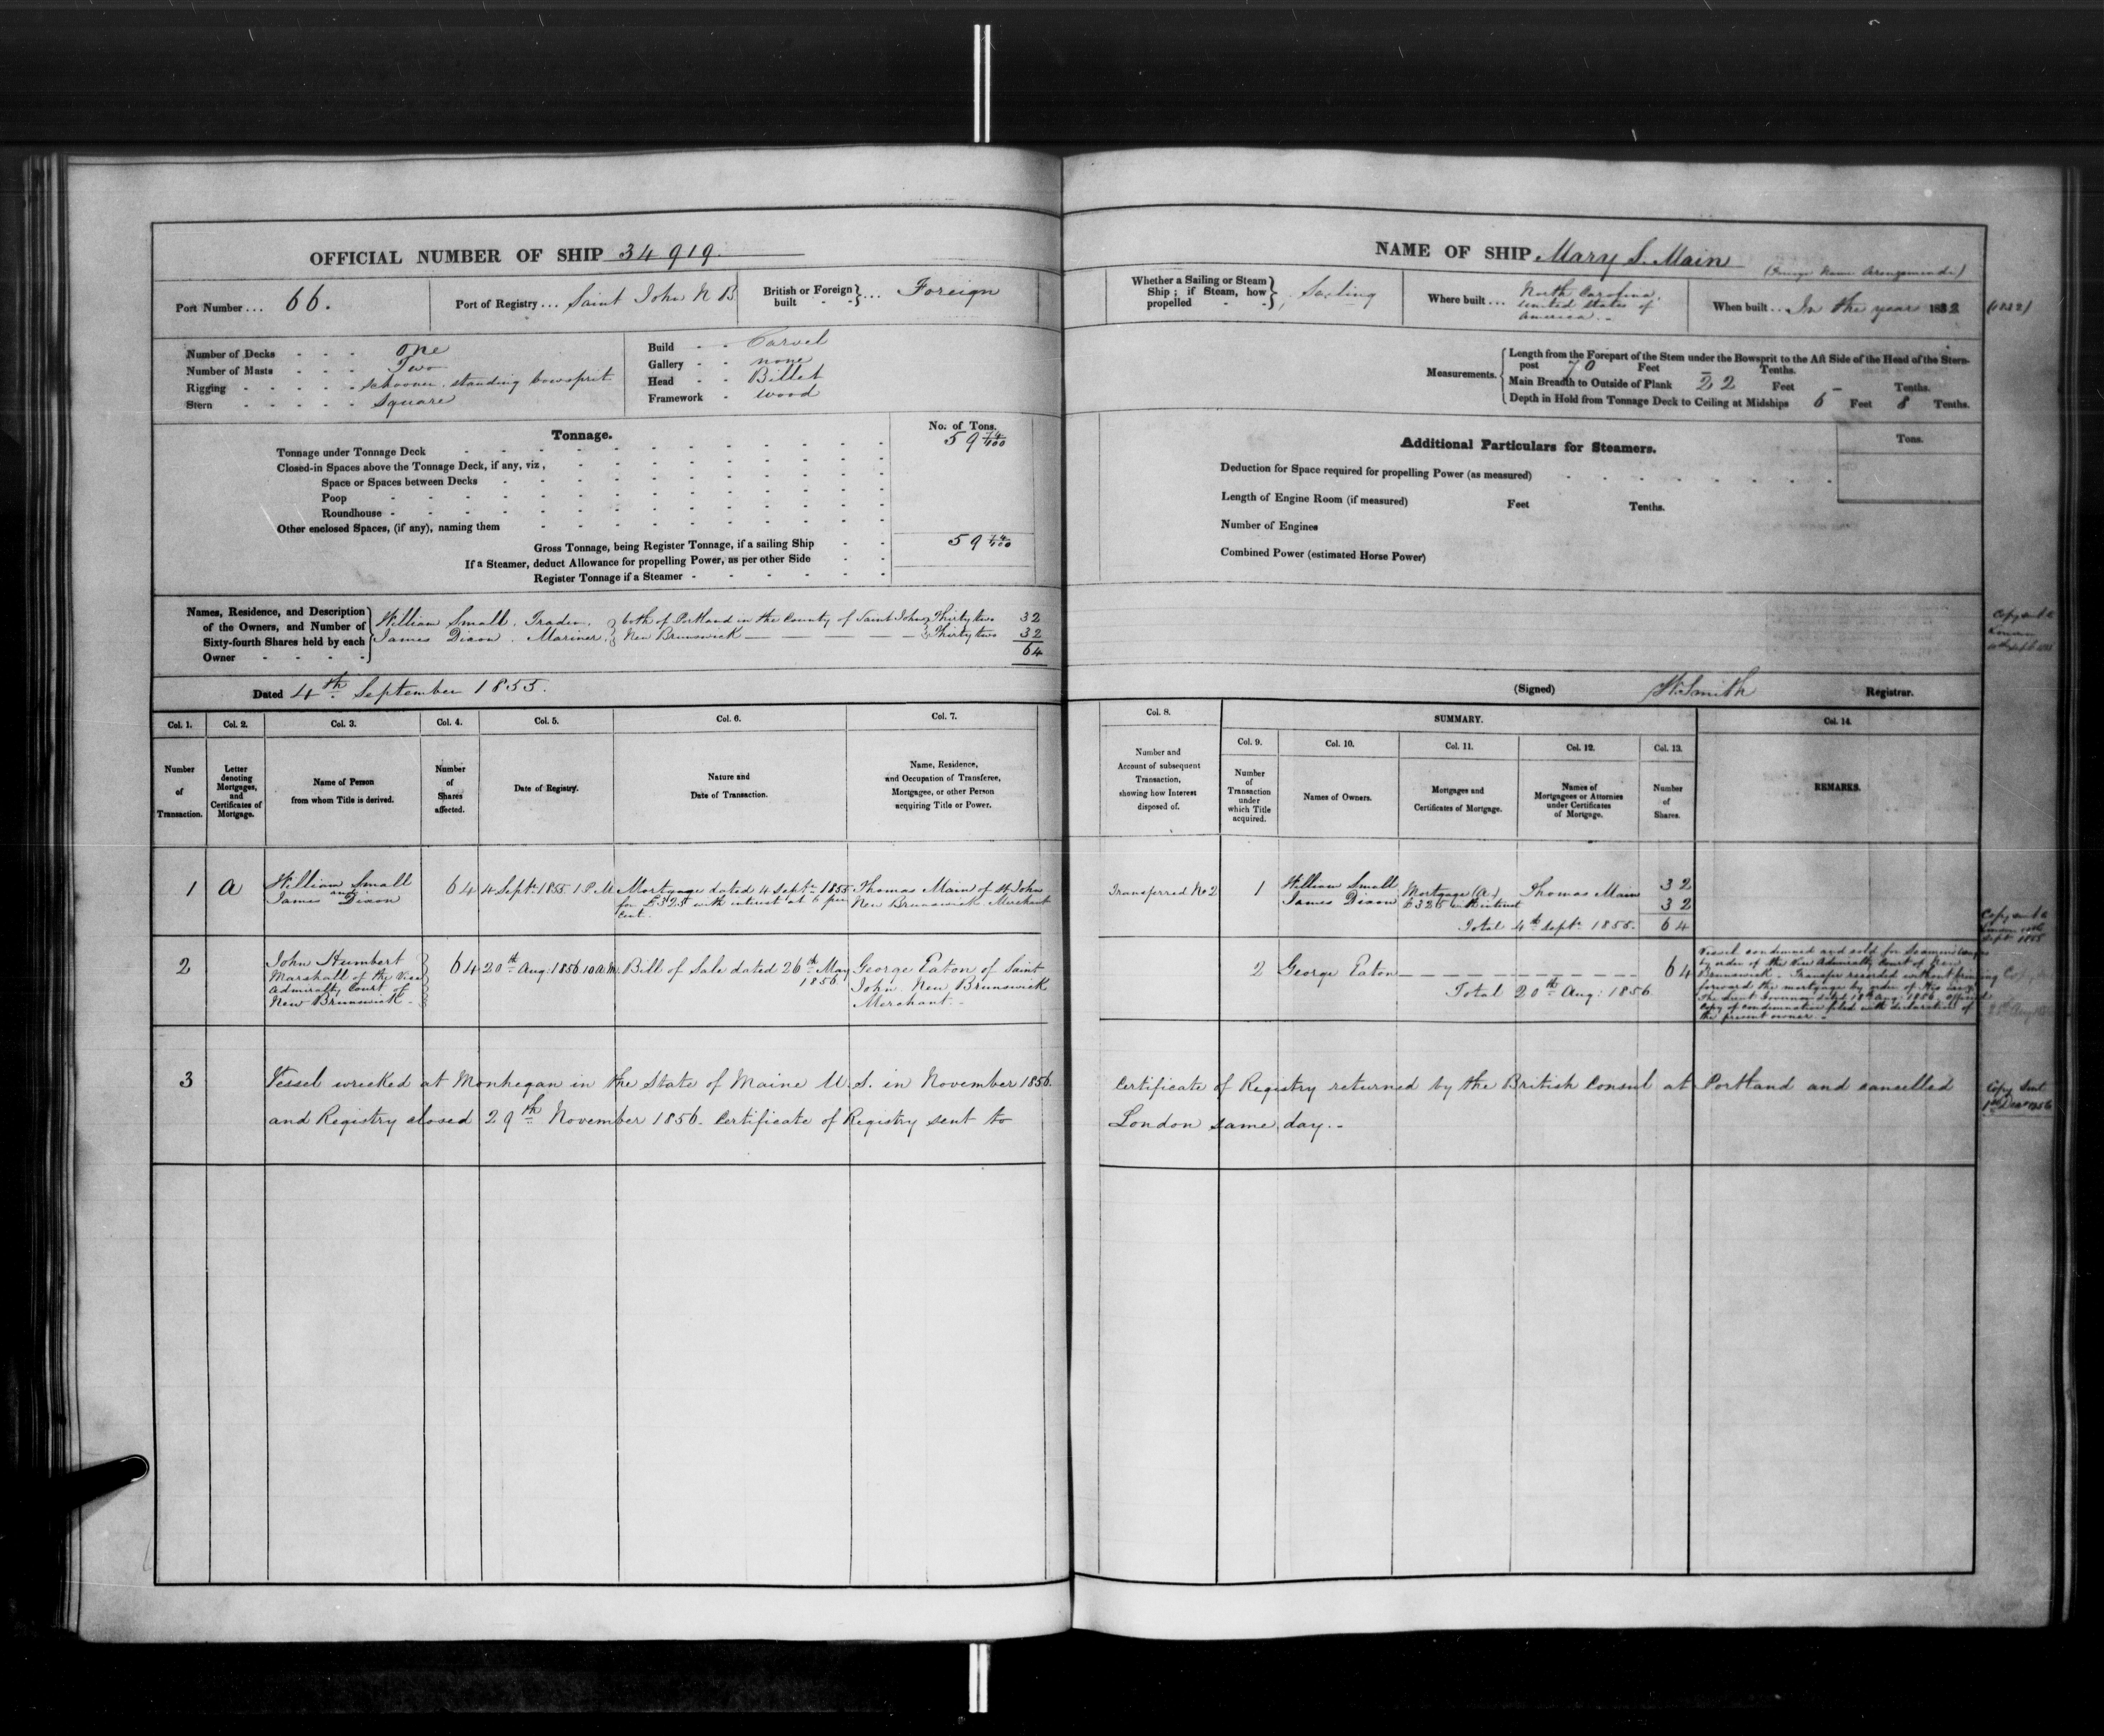 OFFICIAL NUMBER OF SHIP 34919.
Port Number ... 66.
Port of Registry ... Saint John N B
British or Foreign built - - } ... Foreign
Number of Decks - - - One
Number of Masts - - - Two
Rigging - - - - - Schooner. standing bowsprit
Stern - - - - - Square
Build - - Carvel
Gallery - - none
Head - - Billet
Framework - wood
Tonnage.
No. of Tons.
Tonnage under Tonnage Deck 59 74/100
Closed-in Spaces above the Tonnage Deck, if any, viz,
Space or Spaces between Decks
Poop
Roundhouse
Other enclosed Spaces, (if any), naming them
Gross Tonnage, being Register Tonnage, if a sailing Ship 59 74/100
If a Steamer, deduct Allowance for propelling Power, as per other Side
Register Tonnage if a Steamer
Names, Residence, and Description
of the Owners, and Number of
Sixty-fourth Shares held by each
Owner
William Small. Trader. } both of Portland in the County of Saint John } Thirty two 32
James Dixon. Mariner. } New Brunswick } Thirty two 32
64
Dated 4th September 1855.
Col. 1. Col. 2. Col. 3. Col. 4. Col. 5. Col. 6. Col. 7.
Number of Transaction.
Letter denoting Mortgages, and Certificates of Mortgage.
Name of Person from whom Title is derived.
Number of Shares affected.
Date of Registry.
Nature and Date of Transaction.
Name, Residence, and Occupation of Transferee, Mortgagee, or other Person acquiring Title or Power.
1 A William Small and James Dixon 64 4 Sept. 1855 1 P.M
Mortgage dated 4 Septr. 1855 for £325 with interest at 6 per Cent.
Thomas Main of St John New Brunswick Merchant
2 John Humbert Marshall of the Vice Admiralty Court of New Brunswick 64 20th Aug. 1856 10 a m.
Bill of Sale dated 26th May 1856.
George Eaton of Saint John New Brunswick Merchant.
3 Vessel wrecked at Monhegan in the State of Maine U. S. in November 1856.
and Registry closed 29th November 1856. Certificate of Registry sent to
NAME OF SHIP Mary S. Main
Whether a Sailing or Steam Ship; if Steam, how propelled - - } Sailing
Where built ... North Carolina. United States of America.
When built .. In the year 1832 (1832)
Measurements.
Length from the Forepart of the Stem under the Bowsprit to the Aft Side of the Head of the Stern-
post 70 Feet - Tenths.
Main Breadth to Outside of Plank 22 Feet - Tenths.
Depth in Hold from Tonnage Deck to Ceiling at Midships 6 Feet 8 Tenths.
Additional Particulars for Steamers.
Tons.
Deduction for Space required for propelling Power (as measured)
Length of Engine Room (if measured) Feet Tenths.
Number of Engines
Combined Power (estimated Horse Power)
Copy sent to
London
Sept 1855
(Signed) W. Smith Registrar.
Col. 8. SUMMARY. Col. 14.
Col. 9. Col. 10. Col. 11. Col. 12. Col. 13.
Number and Account of subsequent Transaction, showing how Interest disposed of.
Number of Transaction under which Title acquired.
Names of Owners.
Mortgages and Certificates of Mortgage.
Names of Mortgagees or Attornies under Certificates of Mortgage.
Number of Shares.
REMARKS.
Transferred No 2 1 William Small Mortgage (A) Thomas Main 32
James Dixon £325 with interest 32
Total 4th Septr. 1855. 64
Copy sent to
London
Sept. 1855
2 George Eaton 64
Total 20th Aug: 1856
Vessel condemned and sold for Seamens wages
by order of the Vice Admiralty Court of New
Brunswick - Transfer recorded without bringing
forward the mortgage by order of His Excy
The Lieut Governor dated 18th Aug: 1856. official
copy of condemnation filed with declaration of
the present owner.
Certificate of Registry returned by the British Consul at Portland and cancelled
London same day.
Copy Sent
1st Decr 1856